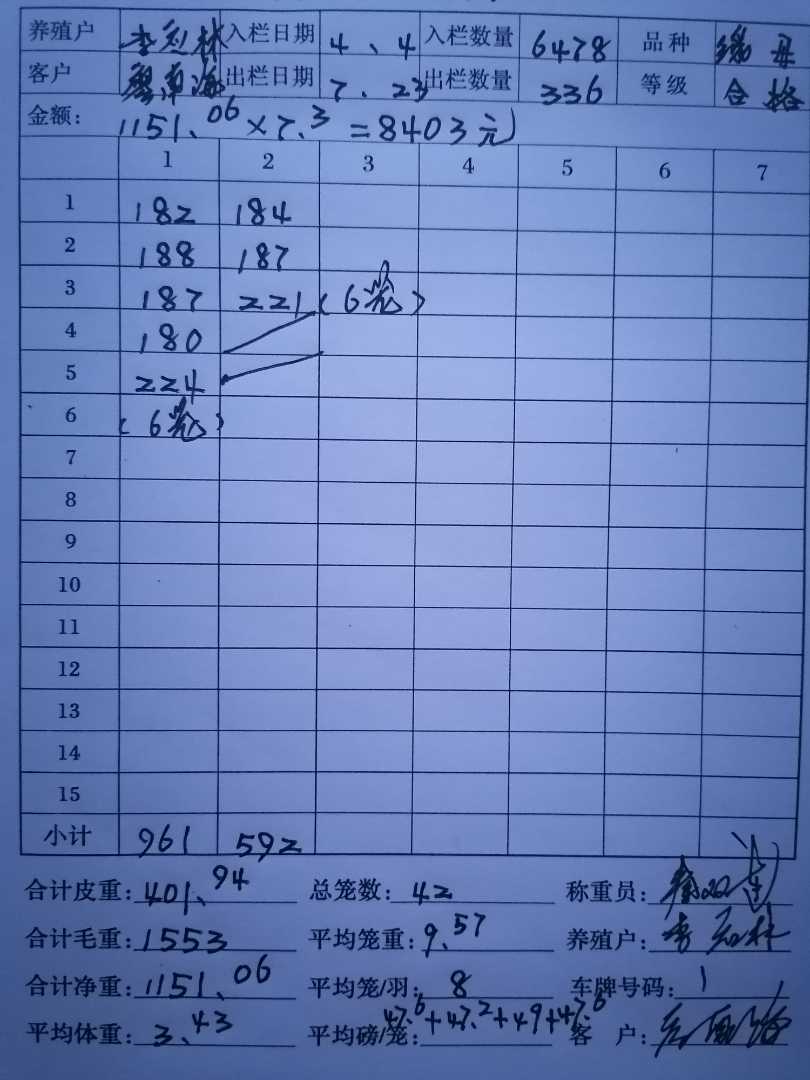 养殖户 李 林 入栏日期 4、4 入栏数量 6478 品种 母
客户 南海 出栏日期 7、23 出栏数量 336 等级 合格
金额: 1151.06×7.3=8403元
1 2 3 4 5 6 7
1 182 184
2 188 187
3 187 221(6笼)
4 180
5 224
6 (6笼)
7
8
9
10
11
12
13
14
15
小计 961 592
合计皮重: 401.94 总笼数: 42 称重员:
合计毛重: 1553 平均笼重: 9.57 养殖户: 李 林
合计净重: 1151.06 平均笼/羽: 8 车牌号码:
平均体重: 3.43 平均磅/笼: 47.6+47.2+49+47.6 客 户: